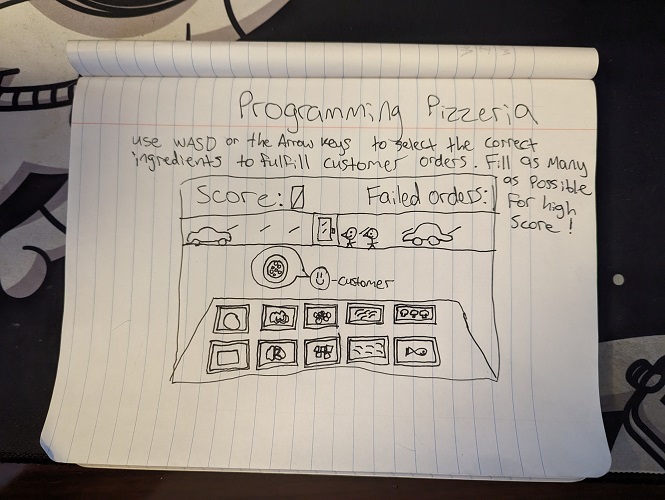 Programming Pizzeria
use WASD or the Arrow keys to select the correct
ingredients to fulfill customer orders. Fill as Many
as Possible
For high
Score!
Score: 0
Failed orders:
-customer